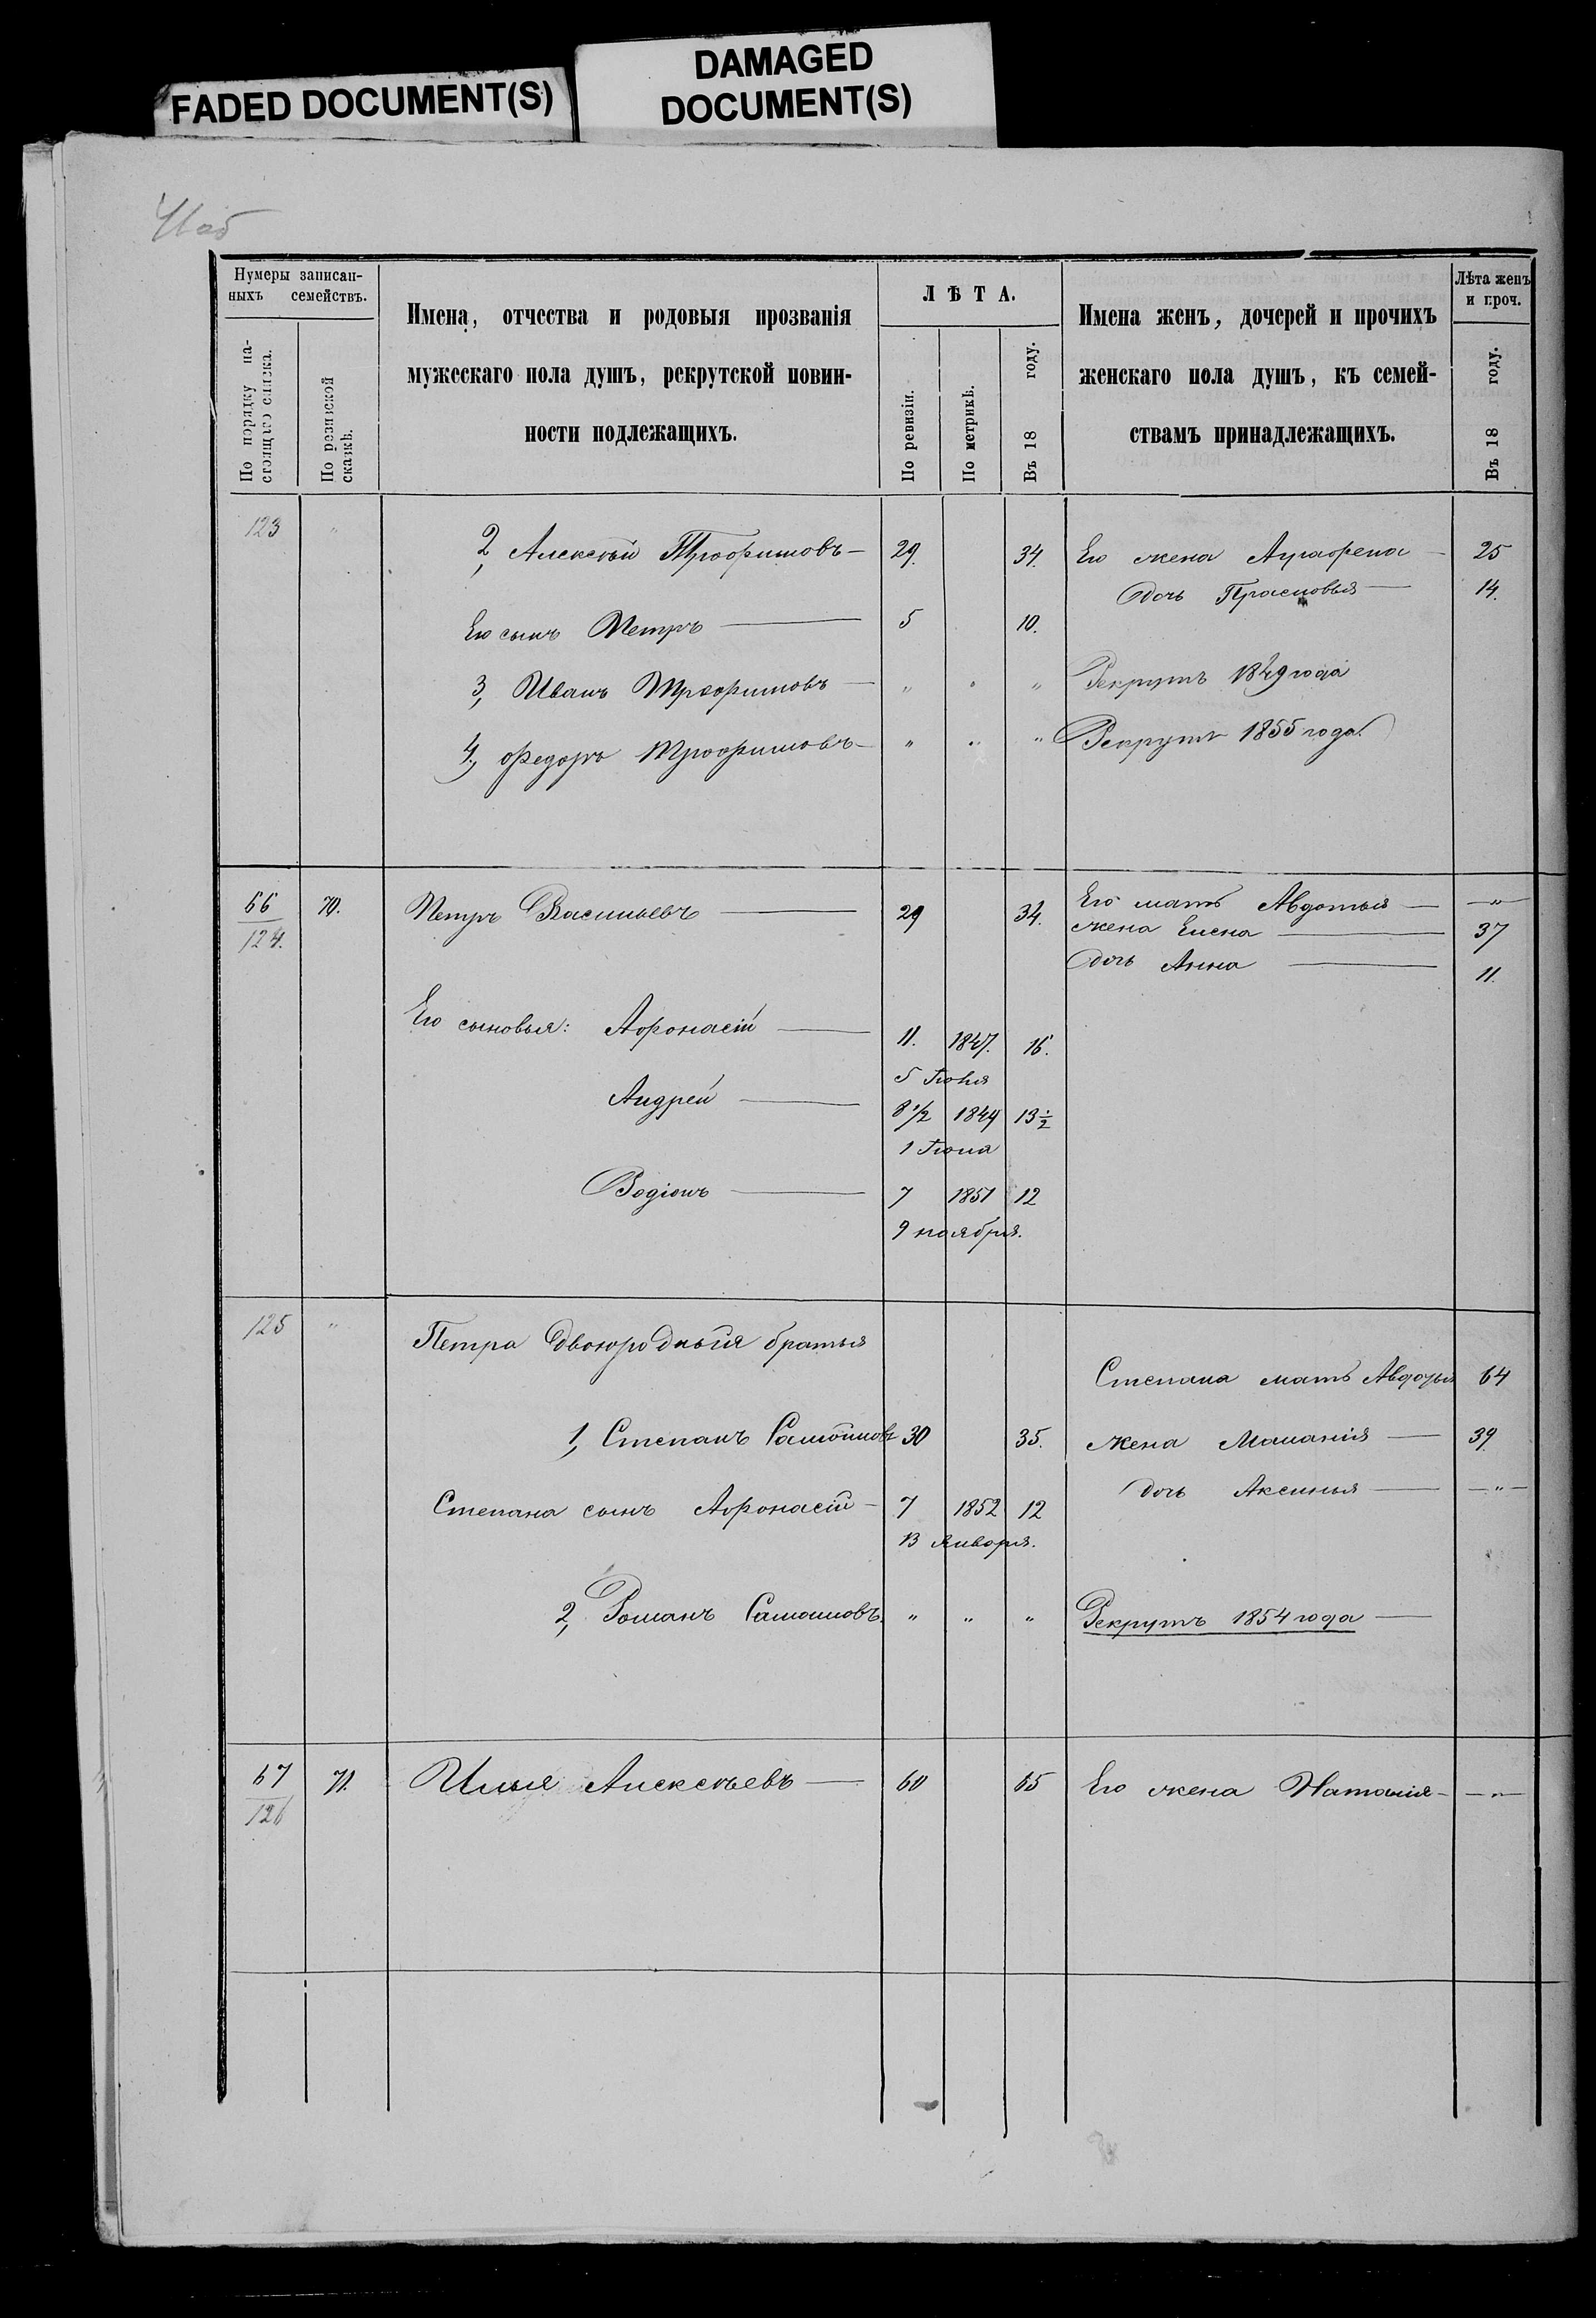 FADED DOCUMENT(S)
DAMAGED
DOCUMENT(S)
41 об
Нумеры записан-
ныхъ семействъ.
По порядку на-
стоящаго списка.
По ревизской
сказкѣ.
Имена, отчества и родовыя прозванія
мужескаго пола душъ, рекрутской повин-
ности подлежащихъ.
ЛѢТА.
По ревизіи.
По метрикѣ.
Въ 18 году.
Имена женъ, дочерей и прочихъ
женскаго пола душъ, къ семей-
ствамъ принадлежащихъ.
Лѣта женъ
и проч.
Въ 18 году.
123 " 2, Алексѣй Трофимовъ — 29. 34. Его жена Аграфена — 25
дочь Прасковья — 14.
Его сынъ Петръ — 5 10.
3, Иванъ Трофимовъ — " " " Рекрутъ 1849 года
4, Федоръ Трофимовъ — " " " Рекрутъ 1855 года.
66 70. Петръ Васильевъ — 29 34. Его мать Авдотья — "
124. жена Елена — 37
дочь Анна — 11.
Его сыновья: Афонасій — 11. 1847. 16.
5 Іюня
Андрей — 8 1/2 1849 13 1/2
1 Іюня
Родіонъ — 7 1851 12
9 ноября.
125 " Петра двоюродныя братья
Степана мать Авдотья 64
1, Степанъ Самойловъ 30 35. жена Маланія — 39
дочь Аксинья — "
Степана сынъ Афонасій — 7 1852 12
13 Января.
2, Романъ Самойловъ. " " " Рекрутъ 1854 года —
67 71. Илья Алексѣевъ — 60 65 Его жена Наталія — "
126